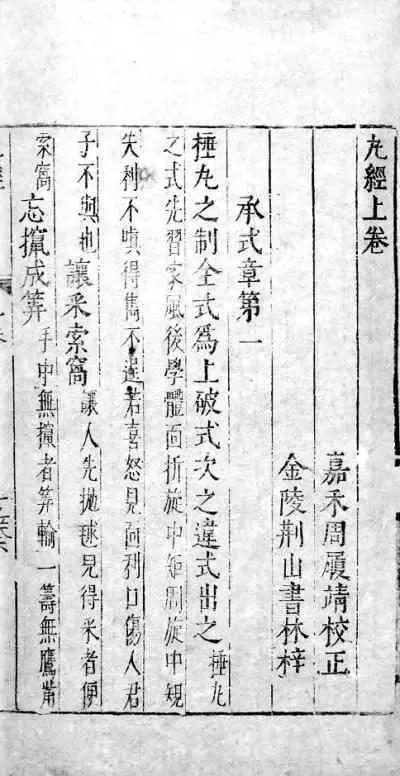 丸經上卷
嘉禾周履靖校正
金陵荆山書林梓
承式章第一
捶丸之制全式爲上破式次之違式出之捶丸
之式先習家風後學體面折旋中矩周旋中規
失利不嗔得雋不逞若喜怒見面利口傷人君
子不與也讓采索窩讓人先拋毬見得采者便
索窩忘攛成筭手中無攛者筭輸一籌無鷹觜